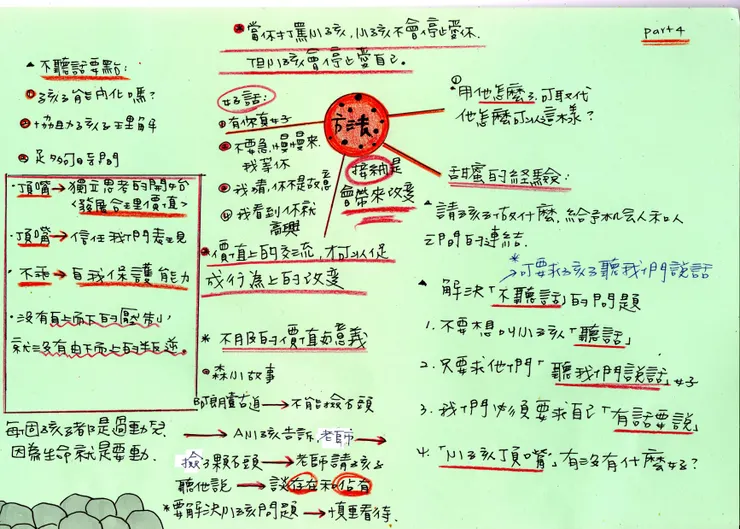 part 4
*當你打罵小孩,小孩不會停止愛你.
但小孩會停止愛自己。
▲不聽話要點:
①孩子能內化嗎?
②協助孩子理解
③足夠的時間
·頂嘴→獨立思考的開始
<發展合理價值>
·頂嘴→信任我們表現
·不乖→自我保護能力
·沒有由上而下的壓制
就沒有由下而上的叛逆.
每個孩子都是過動兒
因為生命就是要動.
好話:
①有你真好
②不要急,慢慢來
我等你
③我猜,你不是故意
④我看到你就
高興
方法
接納是
會帶來改變
價值上的交流,才可以促
成行為上的改變
* 不同的價值與意義
森小故事
→不能撿石頭
→A小孩告訴,老師→
撿3顆石頭→老師請孩子
聽他說→談存在和佔有
*要解決小孩問題→慎重看待.
①用他怎麼了可取代
他怎麼可以這樣?
甜蜜的經驗:
▲請孩子做什麼,給予機會人和人
之間的連結.
*可要求孩子聽我們說話
▲解決「不聽話」的問題
1.不要想叫小孩「聽話」
2.只要求他們「聽我們說話」好
3.我們必須要求自己「有話要說」
4.「小孩頂嘴」有沒有什麼好?